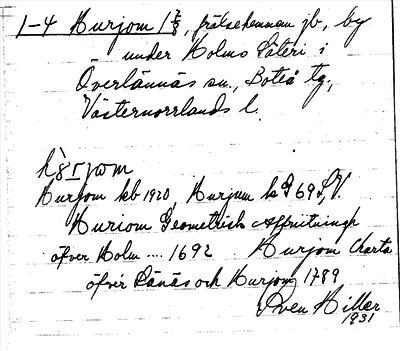 1-4 Hurjom 1 7/8, frälsehemman jb, by
under Holms Säteri i
Överlännäs sn., Boteå tg,
Västernorrlands l.
Hurjom kb 1920, Hurjum
Huriom Geometrisk Affritningh
öfver Holm .... 1692 Hurjom Charta
öfver Ränäs och Hurjom 1789
Sven Hiller
1931